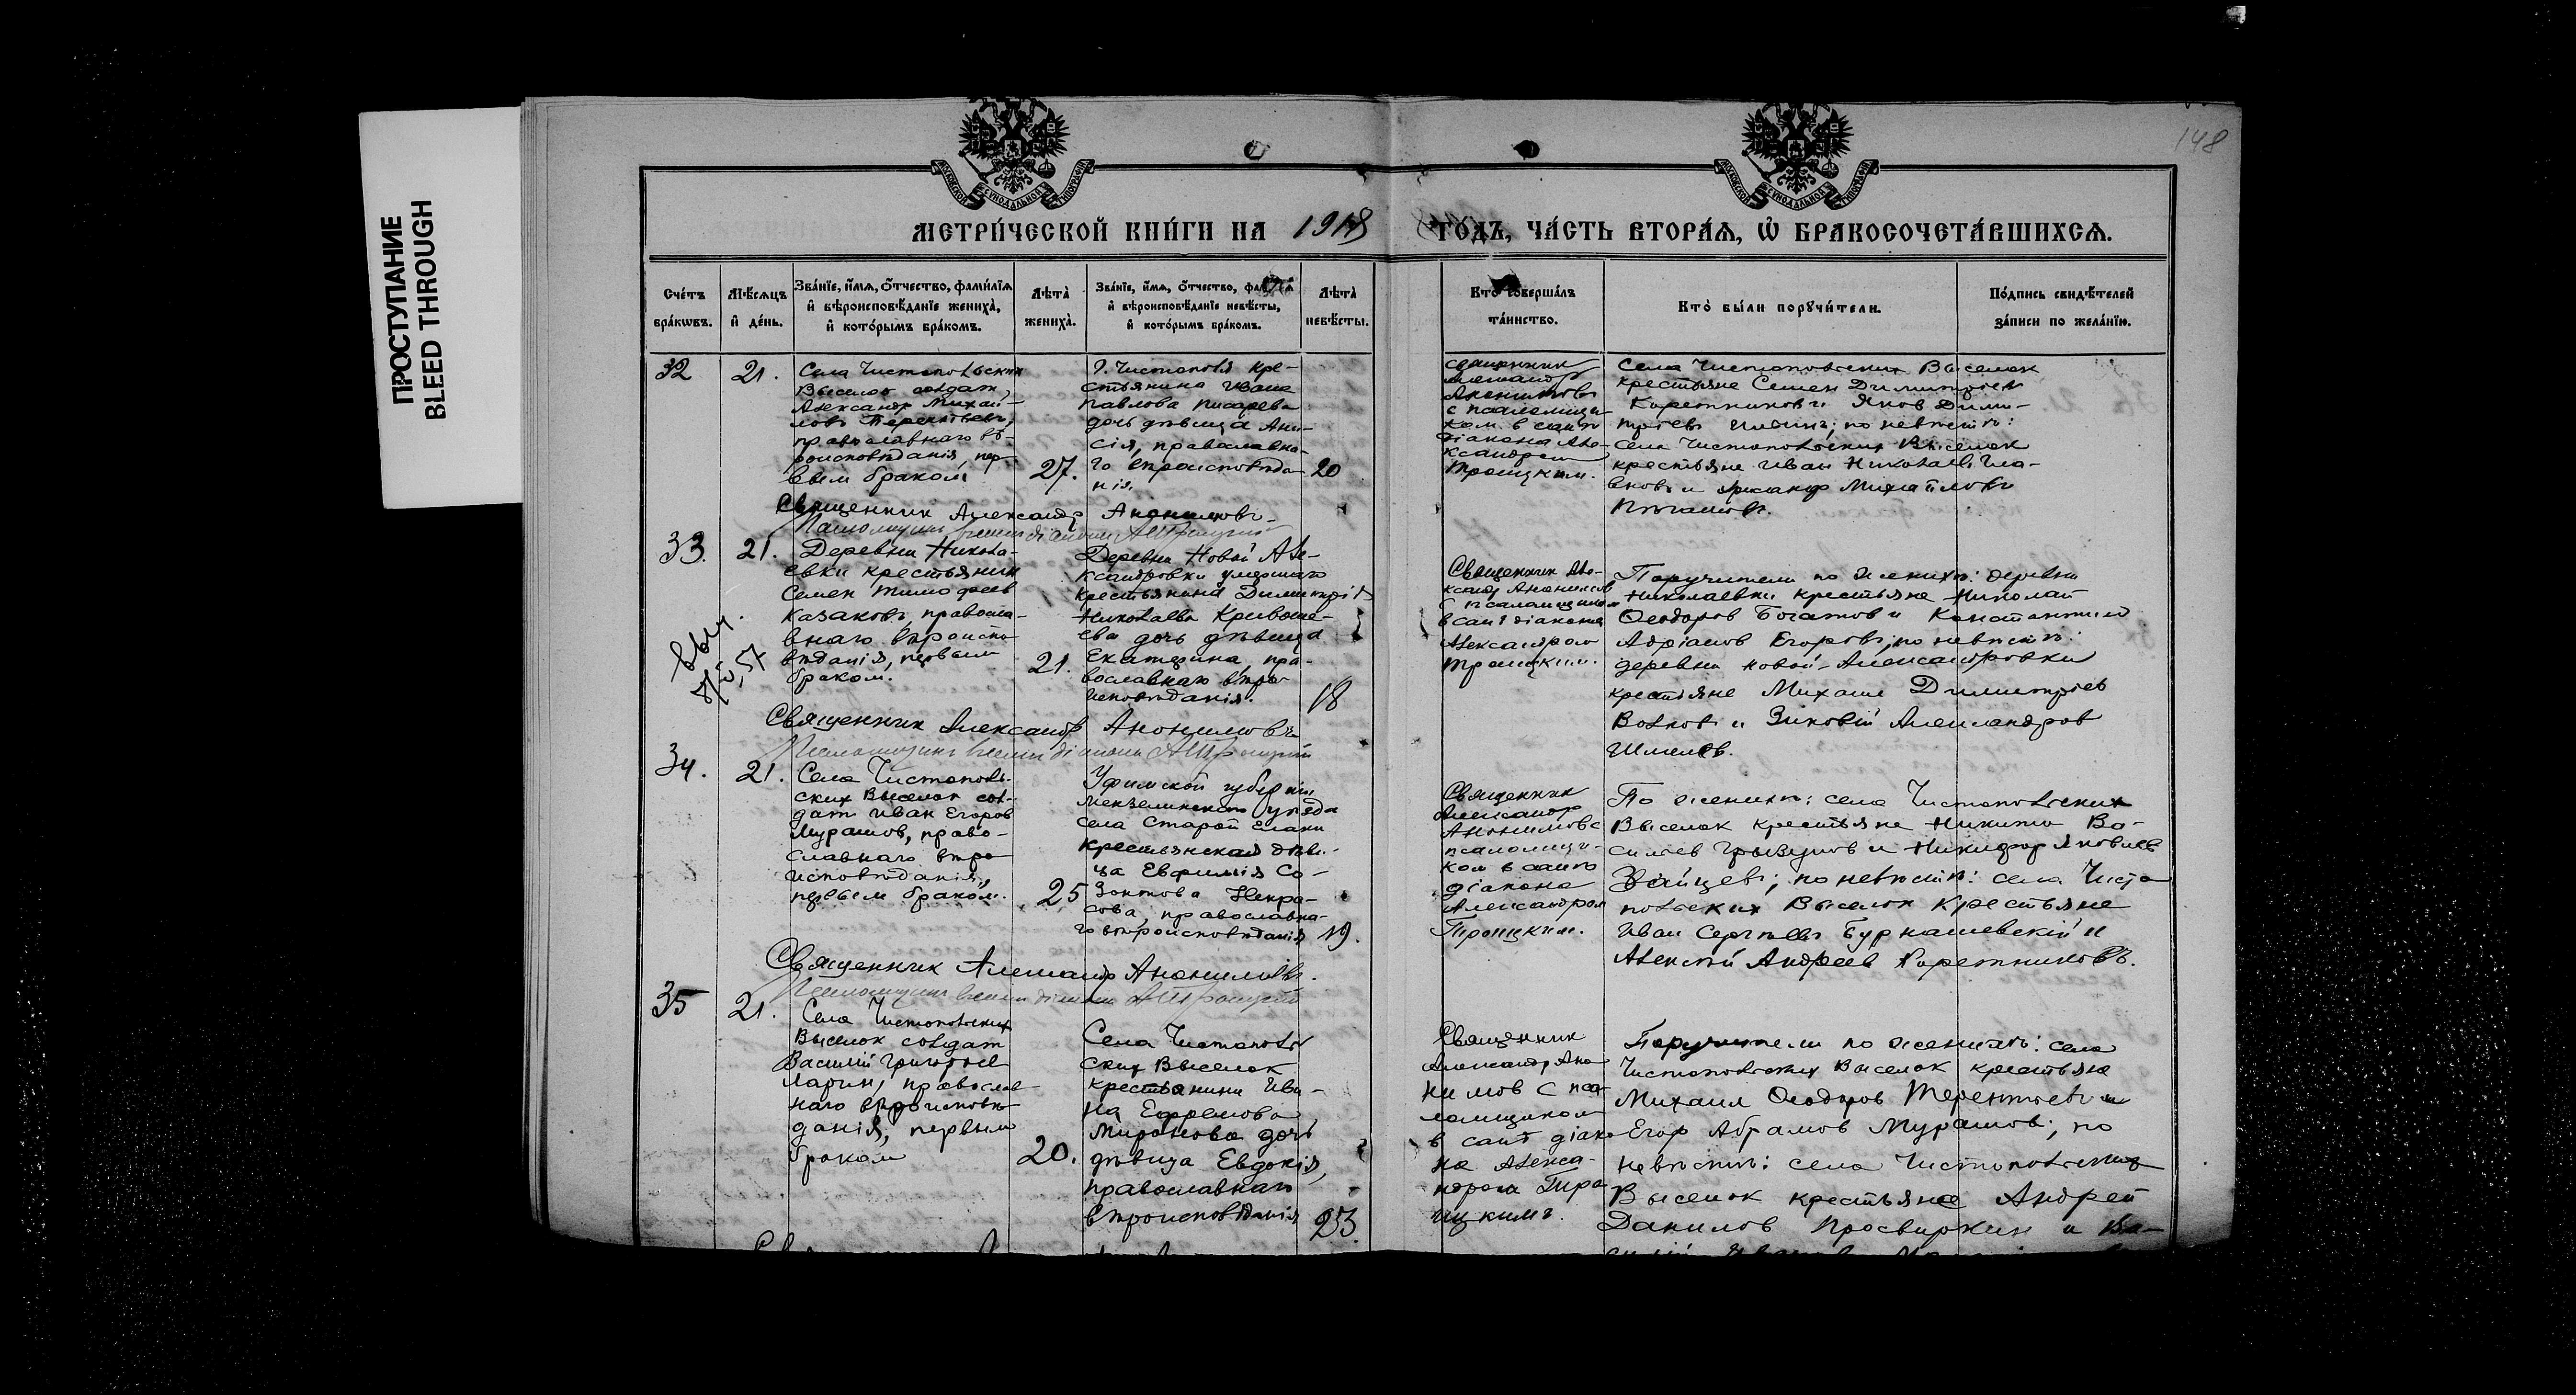 ПРОСТУПАНИЕ
BLEED THROUGH
148
МОСКОВСКОЙ СѴНОДАЛЬНОЙ ТИПОГРАФІИ
МОСКОВСКОЙ СѴНОДАЛЬНОЙ ТИПОГРАФІИ
МЕТРИ́ЧЕСКОЙ КНИ́ГИ НА 1918 ГО́ДЪ, ЧА́СТЬ ВТОРА́Я, Ѡ҆ БРАКОСОЧЕТА́ВШИХСЯ.
Сче́тъ
бра́кѡвъ.
Мѣ́сяцъ
и҆ де́нь.
Зва́нїе, и҆́мя, ѻ҆́тчество, фами́лїя
и҆ вѣроисповѣ́данїе жениха̀,
и҆ кото́рымъ бра́комъ.
Лѣта̀
жениха̀.
Зва́нїе, и҆́мя, ѻ҆́тчество, фами́лїя
и҆ вѣроисповѣ́данїе невѣ́сты,
и҆ кото́рымъ бра́комъ.
Лѣта̀
невѣ́сты.
Кто̀ соверша́лъ
та́инство.
Кто̀ бы́ли порꙋчи́тели.
По́дпись свидѣ́телей
за́писи по жела́нїю.
32
21.
Села Чистопольских
Выселок солдат
Александр Михай-
лов Терентьевъ,
православнаго вѣ-
роисповѣданія, пер-
вым браком
27.
г. Чистополя кре-
стьянина Ивана
Павлова Писарева
дочь дѣвица Ани-
сія, православна-
го вѣроисповѣда-
нія.
20
Священник
Александр
Анонимовъ
с псаломщи-
ком в санѣ
діакона Але-
ксандром
Троицким.
Села Чистопольских Выселок
крестьяне Семен Димитріев
Каретников и Яков Дими-
тріевъ Илвин; по невѣстѣ:
села Чистопольских Выселок
крестьяне Иван Николаевъ
и Михайловъ
Священник Александр Анонимовъ
Псаломщик діакон А Троицкій
33.
21.
Деревни Никола-
евки крестьянин
Семен Тимофеев
Казаковъ, правосла-
внаго вѣроиспо-
вѣданія, первым
браком.
21.
Деревни Новой Але-
ксандровки умершаго
крестьянина Димитрія
Николаева Кривоше-
ева дочь дѣвица
Екатерина, пра-
вославнаго вѣро-
исповѣданія.
18
57
Священник Але-
ксандр Анонимов
с псаломщиком
в санѣ діакона
Александром
Троицким.
Поручители по женихѣ: деревни
Николаевки крестьяне Николай
Ѳеодоров Богатов и Константин
Адріанов Егоровъ, по невѣстѣ:
деревни Новой-Александровки
крестьяне Михаил Димитріев
Волков и Зиновій Александров
Шмелев.
Священник Александр Анонимовъ
Псаломщик діакон А Троицкій
34.
21.
Села Чистополь-
ских Выселок сол-
дат Иван Егоров
Мурашов, право-
славнаго вѣро-
исповѣданія,
первым браком.
25
Уфимской губерніи
Мензелинскаго уѣзда
села Старой
крестьянская дѣви-
ца Евфимія Со-
зонтова Некра-
сова, православна-
го вѣроисповѣданія
19.
Священник
Александр
Анонимов с
псаломщи-
ком в санѣ
діакона
Александром
Троицким.
По женихѣ: села Чистопольских
Выселок крестьяне Никита Ва-
сильев Грызунов и Никифор Яковлев
Зайцев; по невѣстѣ: села Чисто-
польских Выселок крестьяне
Иван Сергѣевъ Бурнашевскій и
Алексѣй Андреев Каретниковъ.
Священник Александр Анонимовъ.
Псаломщик діакон А Троицкій
35
21.
Села Чистопольских
Выселок солдат
Василій Григорьев
Ларин, православ-
наго вѣроисповѣ-
данія, первым
браком
20.
Села Чистополь-
ских Выселок
крестьянина Ива-
на Ефремова
Миронова дочь
дѣвица Евдокія,
православнаго
вѣроисповѣданія
23.
Священник
Александр Ано-
нимов с пса-
ломщиком
в санѣ діако-
на Алекса-
ндром Тро-
ицкимъ.
Поручители по женихѣ: села
Чистопольских Выселок крестьяне
Михаил Ѳеодоров Терентьев и
Егор Абрамов Мурашов; по
невѣстѣ: села Чистопольских
Выселок крестьяне Андрей
Данилов Просвиркин и Ва-